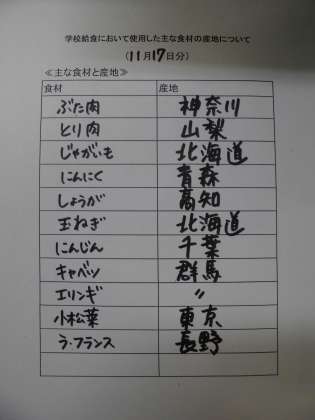 学校給食において使用した主な食材の産地について
(11月17日分)
≪主な食材と産地≫
食材 産地
ぶた肉 神奈川
とり肉 山梨
じゃがいも 北海道
にんにく 青森
しょうが 高知
玉ねぎ 北海道
にんじん 千葉
キャベツ 群馬
エリンギ 〃
小松菜 東京
ラ・フランス 長野